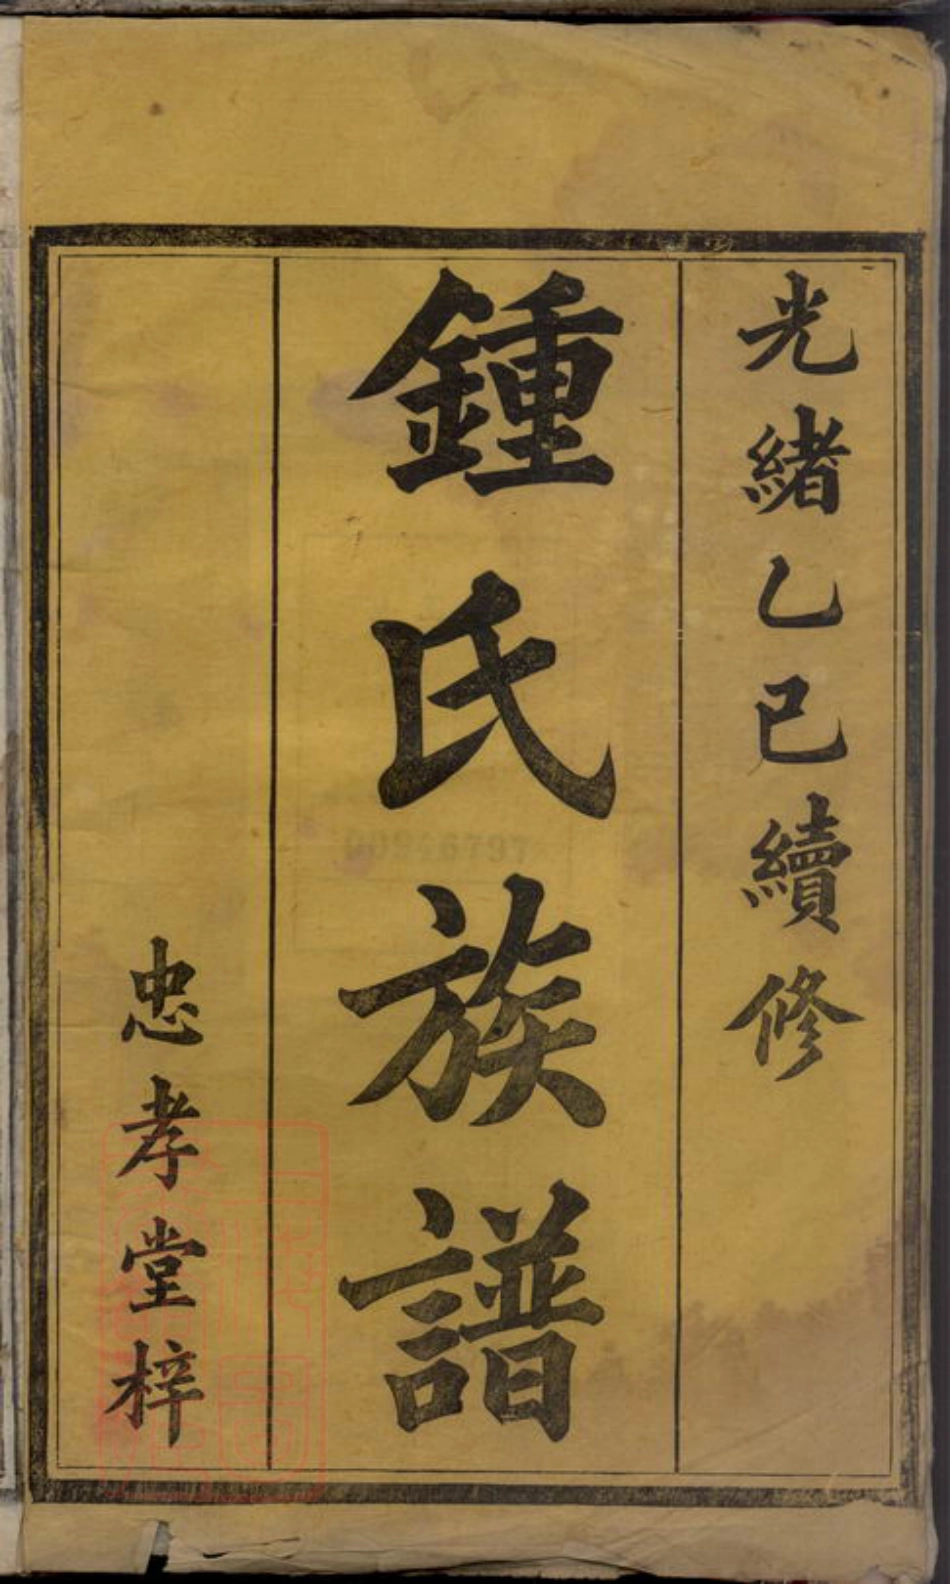 光緒乙巳續修
鍾氏族譜
忠孝堂梓